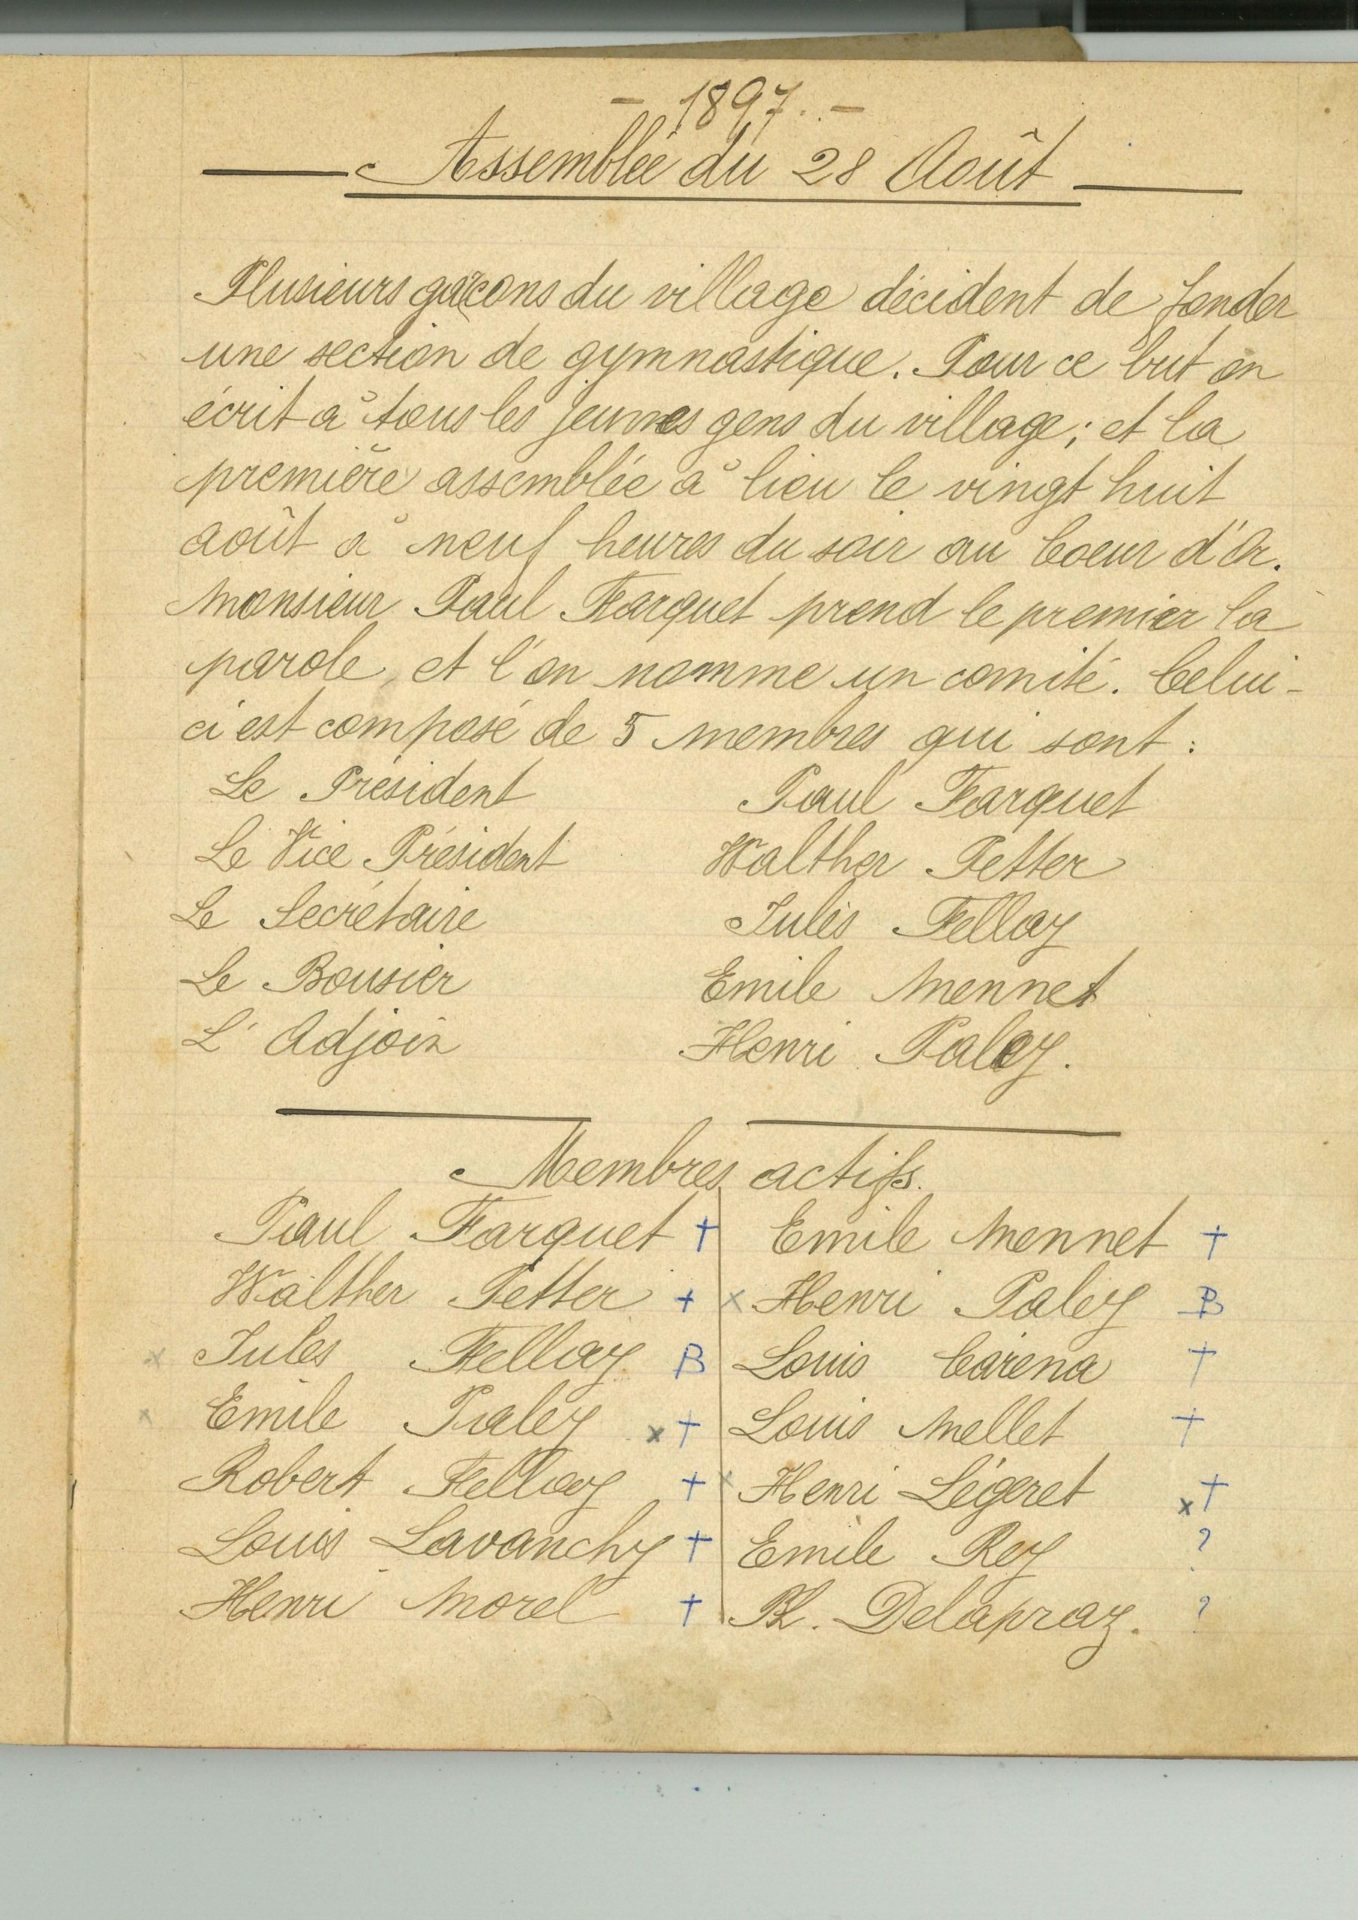 - 1897. -
Assemblée du 28 Août
Plusieurs garçons du village décident de fonder
une section de gymnastique. Pour ce but on
écrit à tous les jeunes gens du village; et la
première assemblée à lieu le vingt huit
août à neuf heures du soir au Coeur d'Or.
Monsieur Paul Farquet prend le premier la
parole et l'on nomme un comité. Celui-
ci est composé de 5 membres qui sont :
Le Président Paul Farquet
Le Vice Président Walther Petter
Le Secrétaire Jules Fellay
Le Boursier Emile Mennet
L'Adjoin Henri Paley.
Membres actifs.
Paul Farquet † Emile Mennet †
Walther Petter † x Henri Paley B
x Jules Fellay B Louis Caréna †
x Emile Paley x † Louis Mellet †
Robert Fellay † x Henri Légeret x †
Louis Lavanchy † Emile Rey ?
Henri Morel † Ph. Delapraz. ?